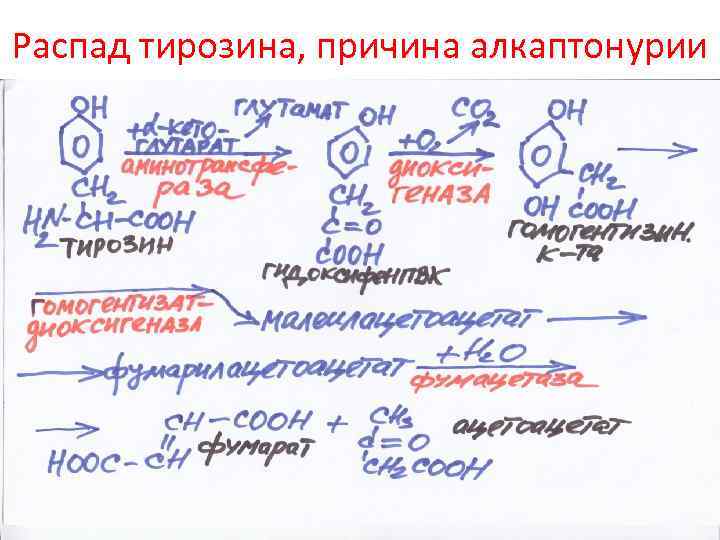 Распад тирозина, причина алкаптонурии
OH
+α-кето-
глутарат
глутамат
аминотрансфе-
раза
CH2
H2N-CH-COOH
тирозин
OH
CH2
C=O
COOH
гидоксифенПВК
+O2
CO2
диокси-
геназа
OH
CH2
OH COOH
гомогентизин.
к-та
гомогентизат-
диоксигеназа
малеилацетоацетат
фумарилацетоацетат
+H2O
фумацетаза
CH-COOH
HOOC-CH
фумарат
+
CH3
C=O
CH2COOH
ацетоацетат